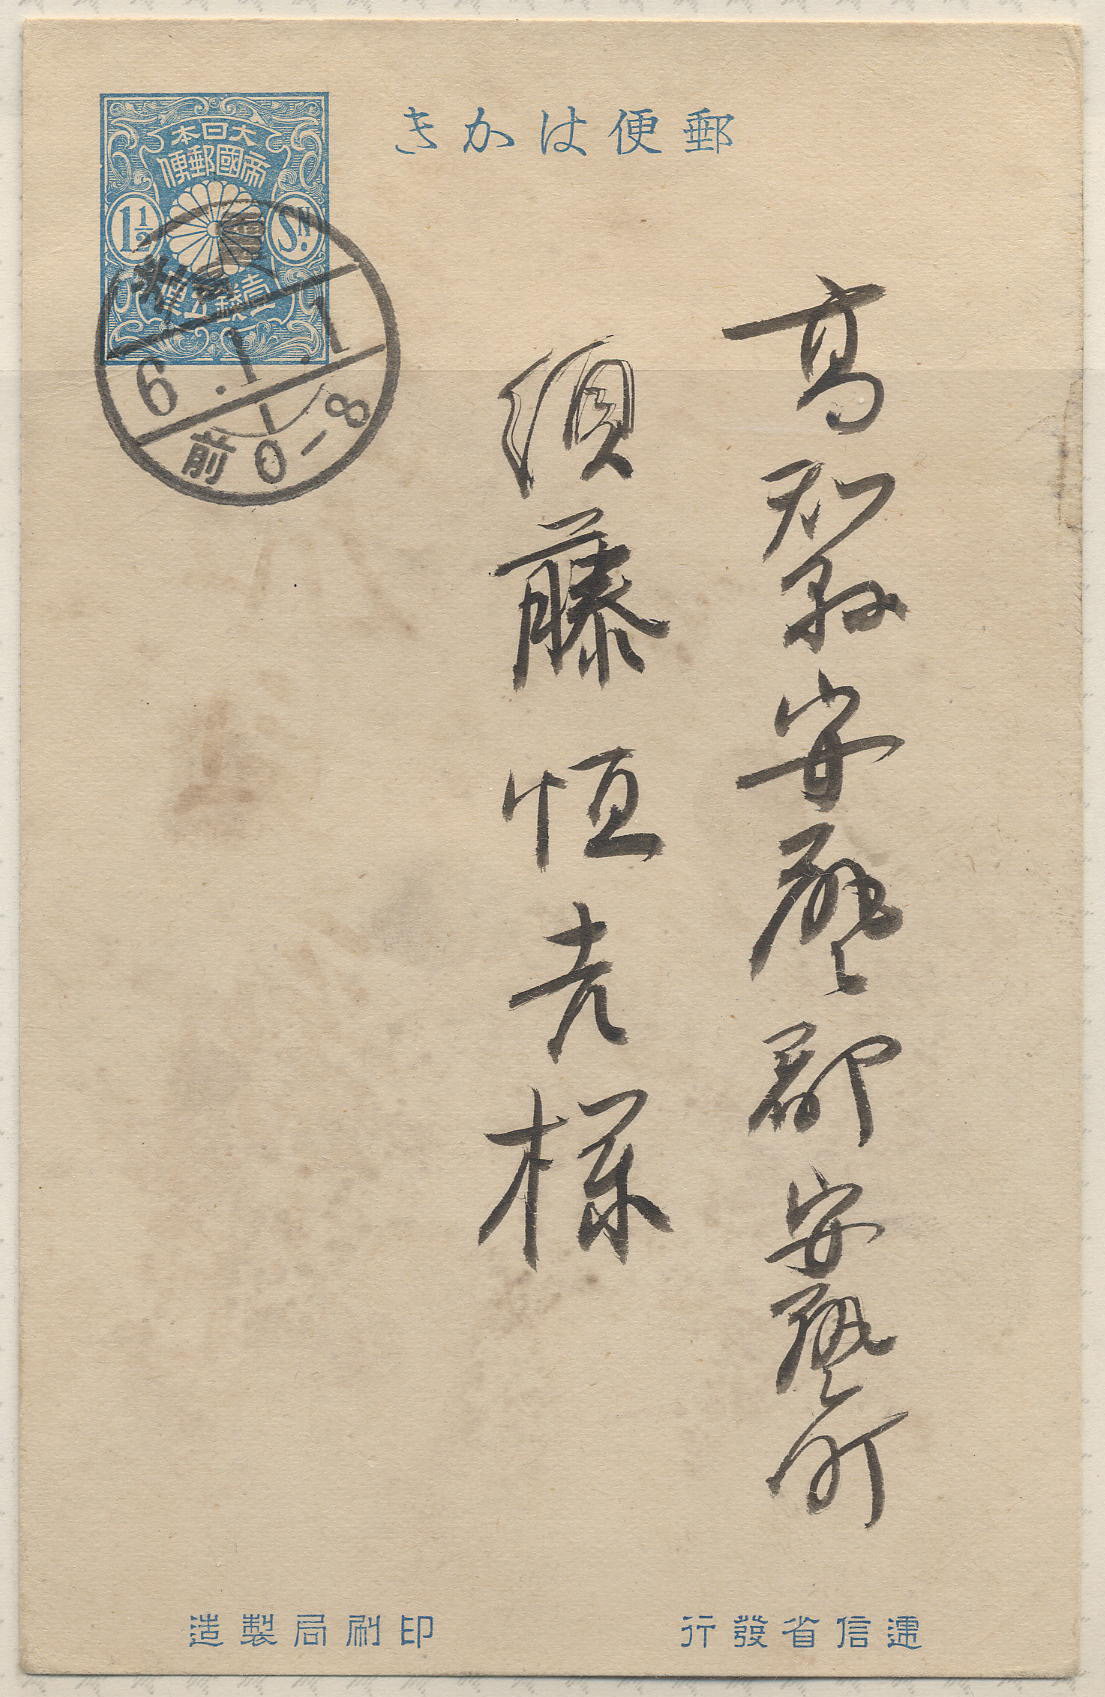 郵便はかき
大日本
帝國郵便
1½ SN.
壹錢五厘
6.1.1
前0-8
高知縣安藝郡安藝町
須藤恒吉様
遞信省發行
印刷局製造